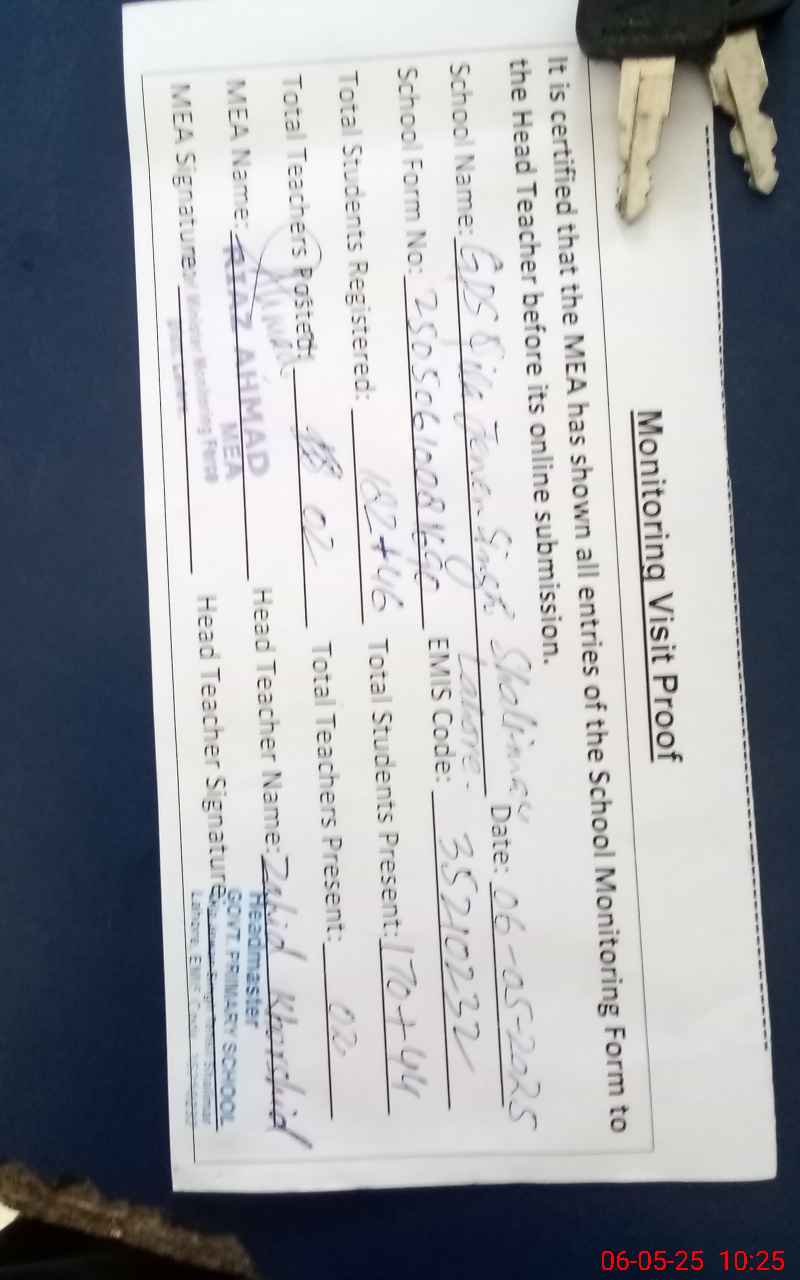 Monitoring Visit Proof
It is certified that the MEA has shown all entries of the School Monitoring Form to
the Head Teacher before its online submission.
School Name: GPS Singh Shalimar Lahore. Date: 06-05-2025
School Form No: EMIS Code: 35210232
Total Students Registered: 182+46 Total Students Present: 170+44
Total Teachers Posted: 02 Total Teachers Present: 02
MEA Name: RIAZ AHMAD Head Teacher Name: Zahid Khurshid
MEA
MEA Signature: Head Teacher Signature:
Monitoring Force
Headmaster
GOVT. PRIMARY SCHOOL
Shalimar
Lahore, EMIS Code
06-05-25 10:25